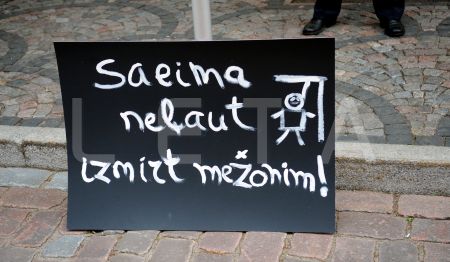 Saeima
neļaut
izmirt mežonim!
LETA